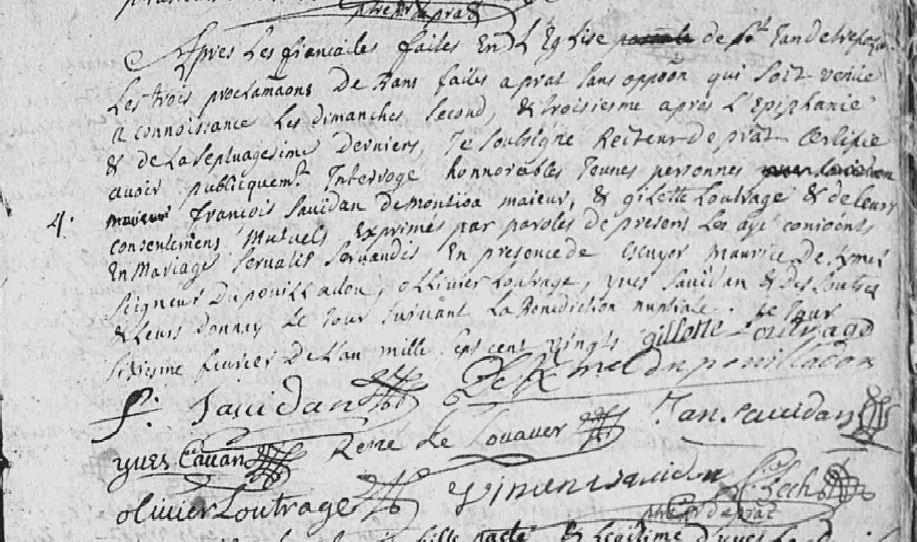 ptre r de prat
Apres Les fiancailles faites En L'Eglise de St Jan de
Les trois proclamaons De Bans faites a prat sans oppoon qui soit venue
a connoissance Les dimanches second, & troisiesme apres L'Epiphanie
& de La septuagesime derniers, Je soubsigné Recteur De prat Certifie
avoir publiquemt Interrogé honnorables Jeunes personnes
4. francois Savidan De montioa maieur, & gilette Loutrage & de leurs
consentemens Mutuels Exprimés par paroles de present Les ayé conioints
En Mariage servatis servandis En presence de escuyer maurice De Kmel
seigneur Du pouilladou, ollivier Loutrage, yves savidan & Des soutes
& Leurs donney Le Jour suivant La Benediction nuptiale. Le Jour
sixiesme fevrier De L'an mille sept cent vingts gillette outrage
De Kmel du pouilladou
f. Savidan Rene Le Louarer Jan Savidan
yves Cavan
olivier Loutrage Vincent savidan
ptre r de prat
fille & Legitime d'yves Le